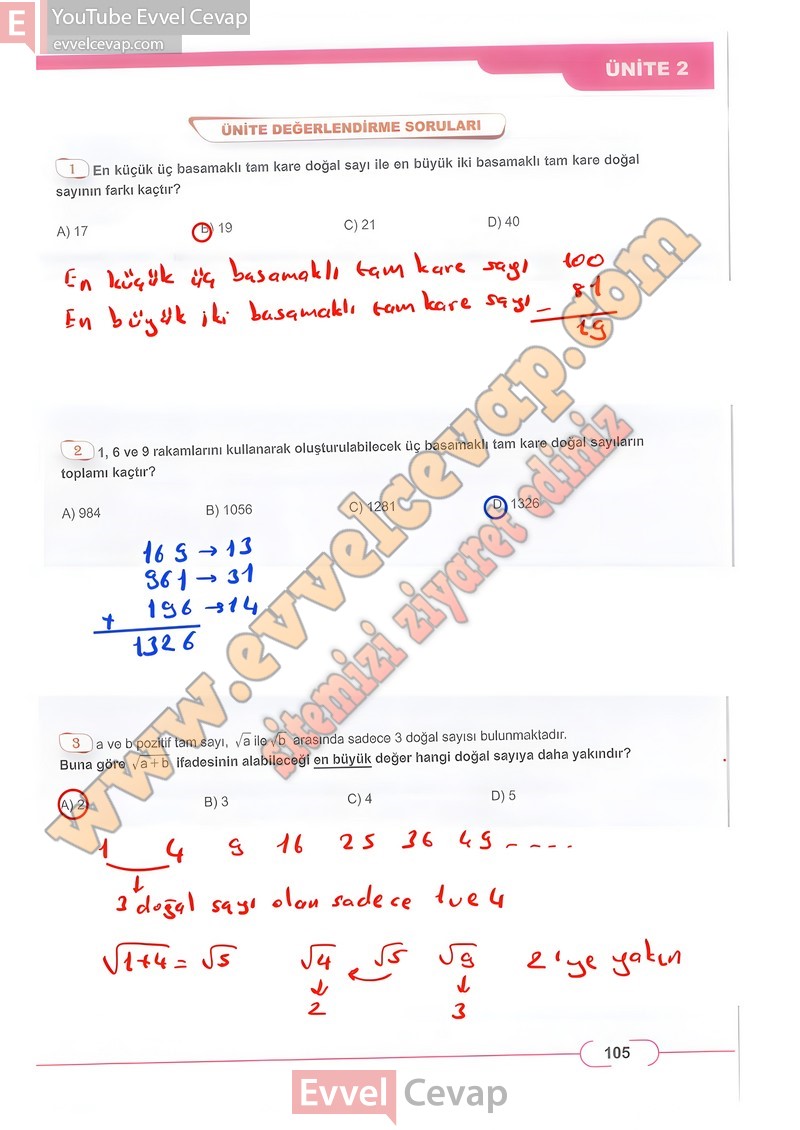 E YouTube Evvel Cevap
evvelcevap.com
ÜNİTE 2
ÜNİTE DEĞERLENDİRME SORULARI
1 En küçük üç basamaklı tam kare doğal sayı ile en büyük iki basamaklı tam kare doğal
sayının farkı kaçtır?
A) 17 B) 19 C) 21 D) 40
En küçük üç basamaklı tam kare sayı 100
En büyük iki basamaklı tam kare sayı - 81
19
2 1, 6 ve 9 rakamlarını kullanarak oluşturulabilecek üç basamaklı tam kare doğal sayıların
toplamı kaçtır?
A) 984 B) 1056 C) 1281 D) 1326
169 → 13
961 → 31
+ 196 → 14
1326
www.evvelcevap.com
sitemizi ziyaret ediniz
3 a ve b pozitif tam sayı, √a ile √b arasında sadece 3 doğal sayısı bulunmaktadır.
Buna göre √a+b ifadesinin alabileceği en büyük değer hangi doğal sayıya daha yakındır?
A) 2 B) 3 C) 4 D) 5
1 4 9 16 25 36 49 ----
3 doğal sayı olan sadece 1 ve 4
√1+4 = √5 √4 √5 √9 2'ye yakın
2 3
105
Evvel Cevap